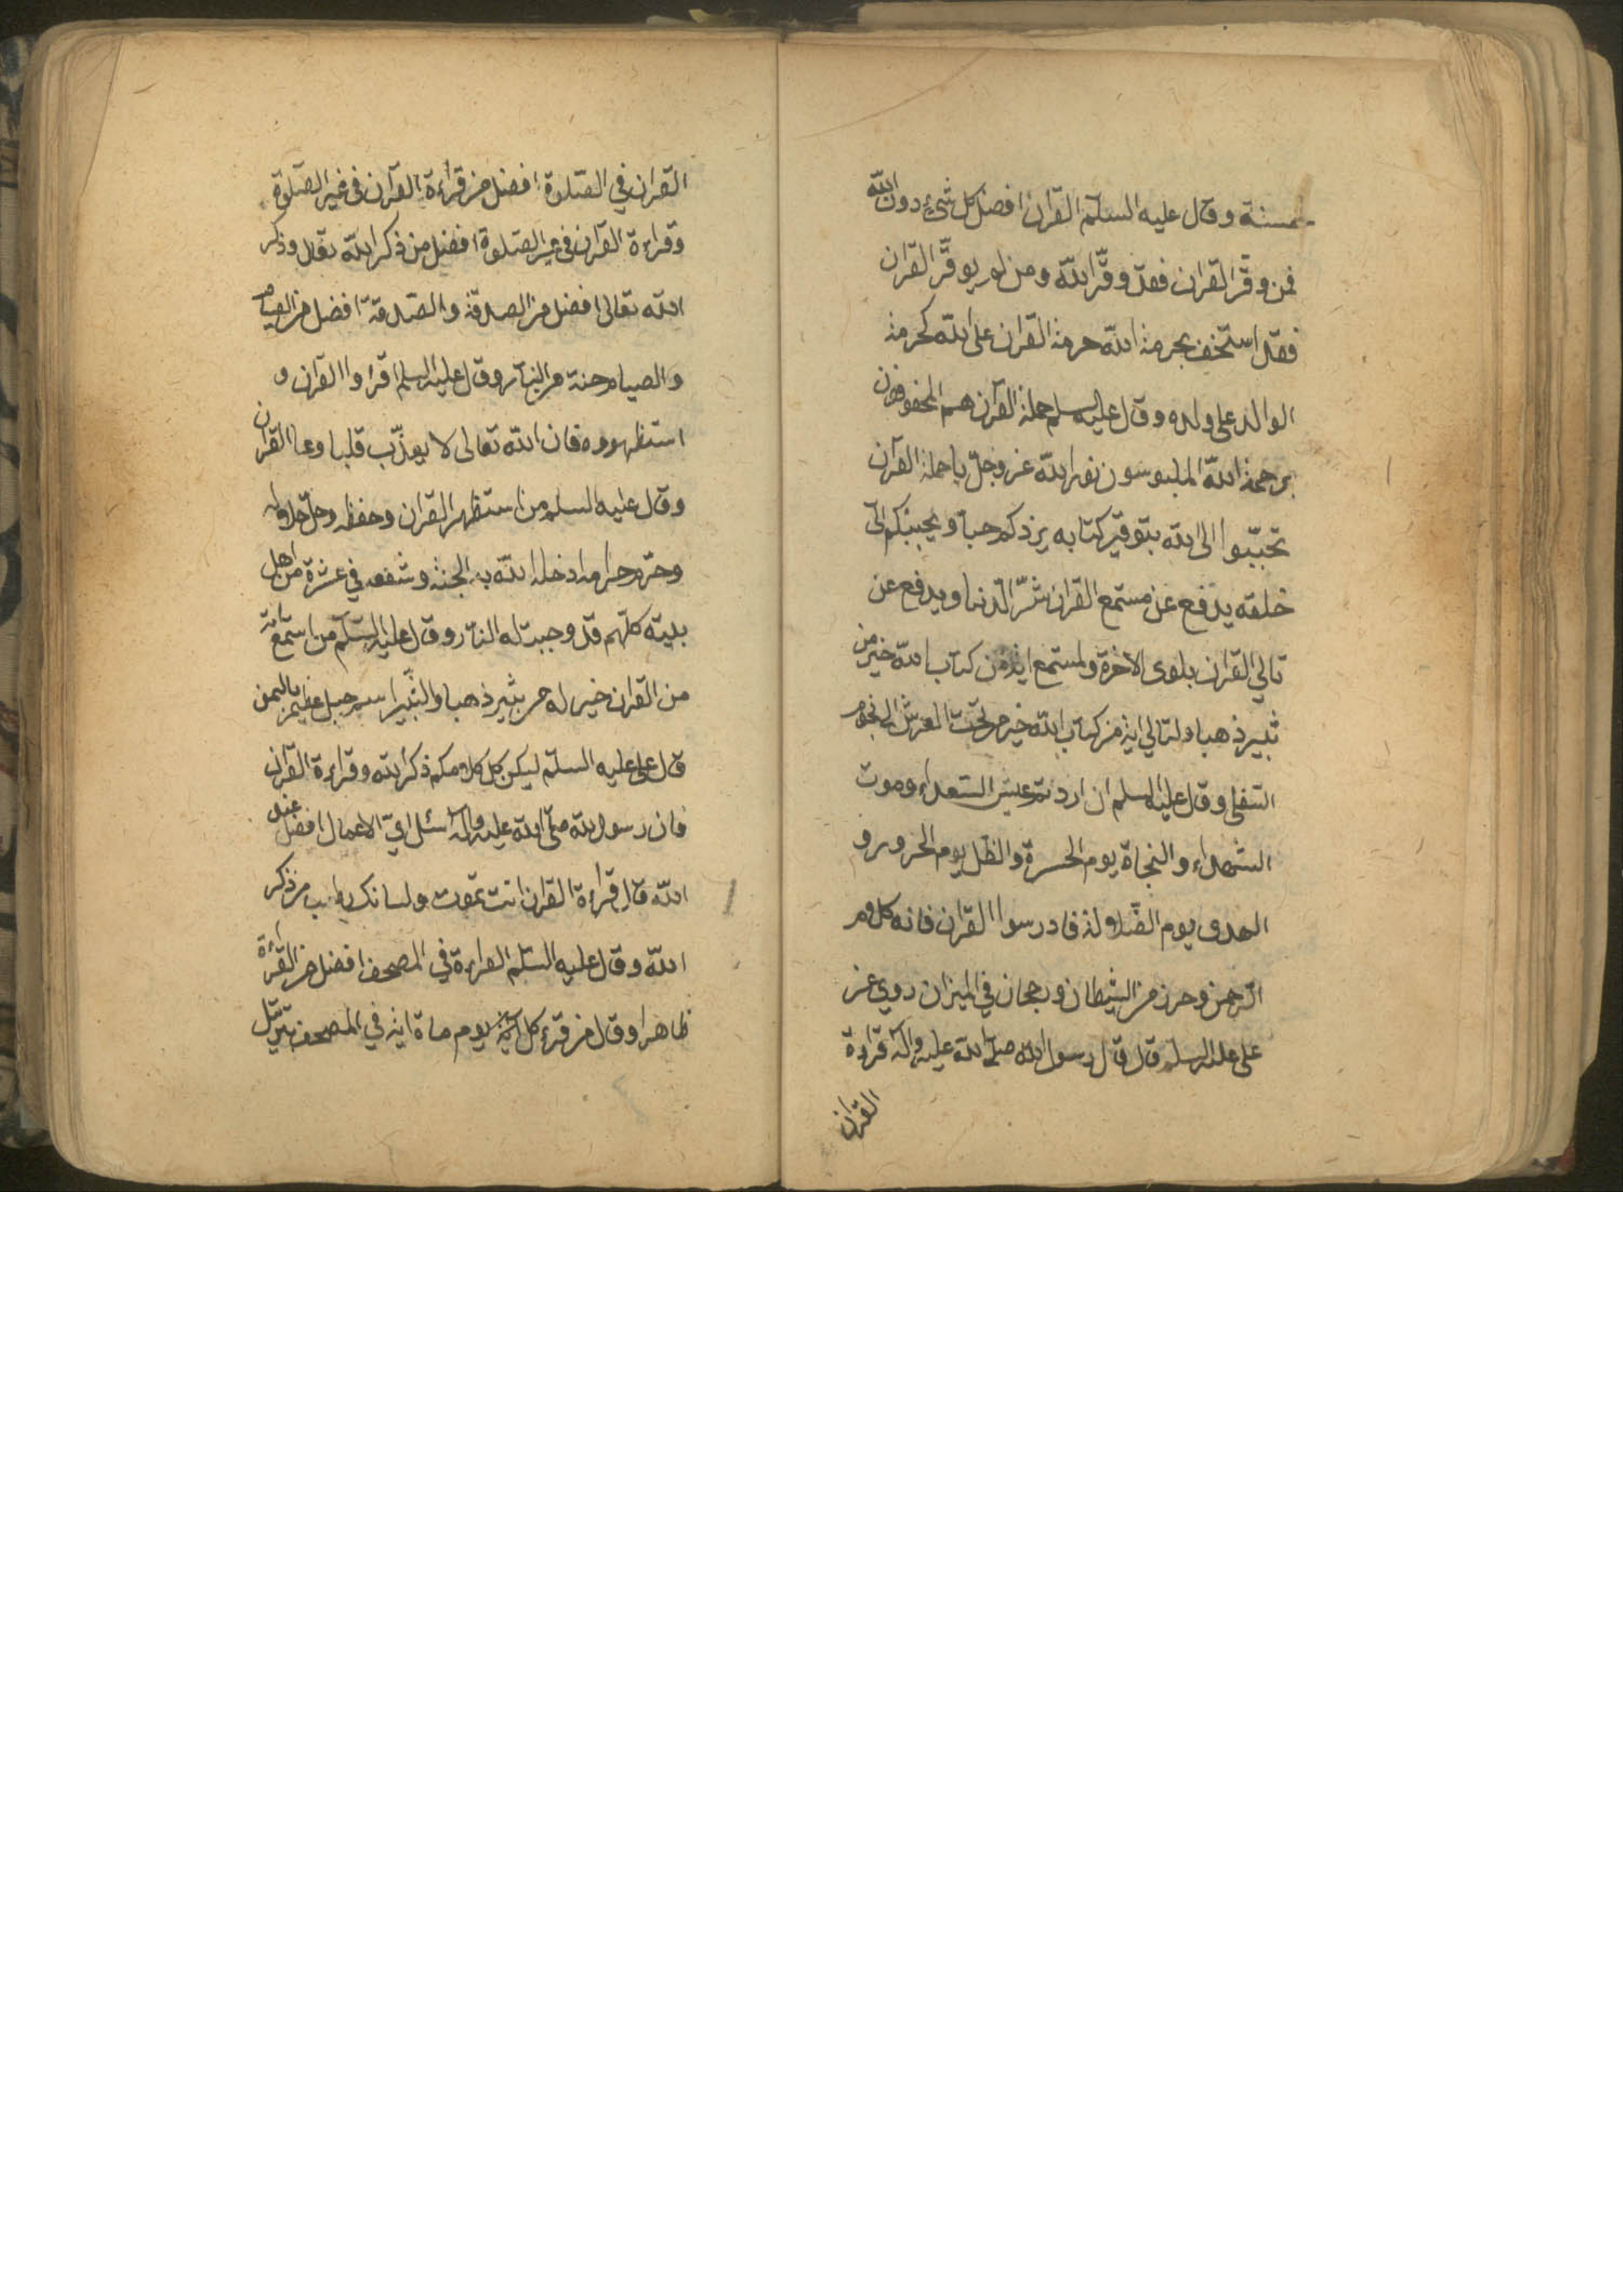 خمسنة وقال عليه السلم القران افضل كل شئ دون الله
فمن وقّر القران فقد وقّر الله ومن لم يوقّر القران
فقد استخف بحرمة الله حرمة القران على الله كحرمة
الوالد على ولده وقال عليه السلم حملة القرآن هم المحفوفون
برحمة الله الملبوسون نور الله عز وجلّ يا حملة القرآن
تحبّبوا الى الله بتوقير كتابه يزدكم حبا ويحببكم الى
خلقه يدفع عن مستمع القران شرّ الدنيا ويدفع عن
تالي القران بلوى الاخرة ولمستمع اية من كتاب الله خير من
ثبير ذهبا ولتالي اية من كتاب الله خير من تحت العرش الى نجوم
السفلى وقال عليه السلم ان اردتم عيش السعداء وموت
الشهداء والنجاة يوم الحسرة والظل يوم الحرور و
الهدى يوم الضلالة فادرسوا القران فانه كلام
الرحمن وحرز من الشيطان ورجحان في الميزان روي عن
علي عليه السلم قال قال رسول الله صلى الله عليه واله قراءة
القران
القران في الصّلوة افضل من قراءة القرآن في غير الصّلوة
وقراءة القرآن في غير الصّلوة افضل من ذكر الله تعالى وذكر
الله تعالى افضل من الصدقة والصّدقة افضل من الصيام
والصيام جنة من النار وقال عليه السلم اقراوا القرآن و
استظهروه فان الله تعالى لا يعذّب قلبا وعا القران
وقال عليه السلم من استظهر القران وحفظه وحلّ حلاله
وحرّم حرامه ادخله الله به الجنة وشفعه في عشرة من اهل
بيته كلّهم قد وجبت له النار وقال عليه السّلم من استمع آية
من القران خير له من ثبير ذهبا والثبير اسم جبل عظيم باليمن
قال علي عليه السلم ليكن كل كلامكم ذكر الله وقراءة القران
فان رسول الله صلى الله عليه واله سئل ايّ الاعمال افضل عند
الله قال قراءة القران انت تموت ولسانك رطب من ذكر
الله وقال عليه السّلم القراءة في المصحف افضل من القراءة
ظاهرا وقال من قرء كل يوم ماة اية في المصحف بترتيل